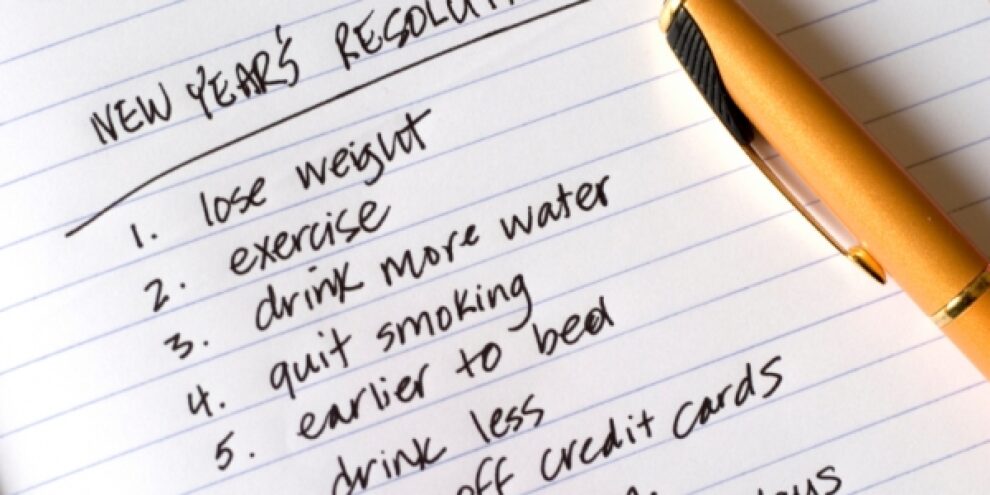 NEW YEAR'S RESOLUT
1. lose weight
2. exercise
3. drink more water
4. quit smoking
5. earlier to bed
drink less
off credit cards